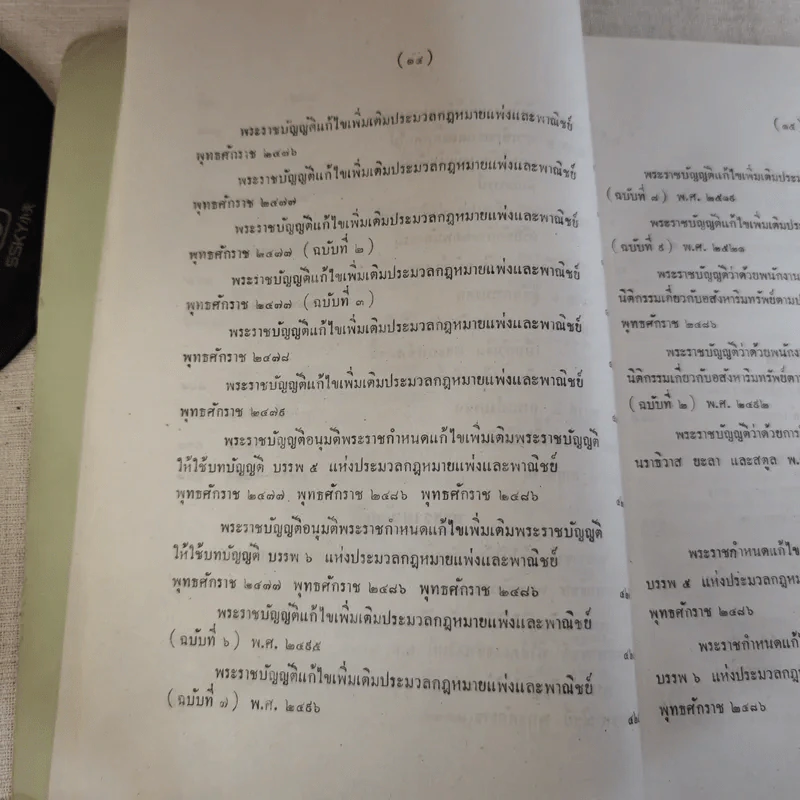 (๑๔)
พระราชบัญญัติแก้ไขเพิ่มเติมประมวลกฎหมายแพ่งและพาณิชย์
พุทธศักราช ๒๔๗๖
พระราชบัญญัติแก้ไขเพิ่มเติมประมวลกฎหมายแพ่งและพาณิชย์
พุทธศักราช ๒๔๗๗
พระราชบัญญัติแก้ไขเพิ่มเติมประมวลกฎหมายแพ่งและพาณิชย์
พุทธศักราช ๒๔๗๗ (ฉบับที่ ๒)
พระราชบัญญัติแก้ไขเพิ่มเติมประมวลกฎหมายแพ่งและพาณิชย์
พุทธศักราช ๒๔๗๗ (ฉบับที่ ๓)
พระราชบัญญัติแก้ไขเพิ่มเติมประมวลกฎหมายแพ่งและพาณิชย์
พุทธศักราช ๒๔๗๘
พระราชบัญญัติแก้ไขเพิ่มเติมประมวลกฎหมายแพ่งและพาณิชย์
พุทธศักราช ๒๔๗๙
พระราชบัญญัติอนุมัติพระราชกำหนดแก้ไขเพิ่มเติมพระราชบัญญัติ
ให้ใช้บทบัญญัติ บรรพ ๕ แห่งประมวลกฎหมายแพ่งและพาณิชย์
พุทธศักราช ๒๔๗๗ พุทธศักราช ๒๔๘๖ พุทธศักราช ๒๔๘๖
พระราชบัญญัติอนุมัติพระราชกำหนดแก้ไขเพิ่มเติมพระราชบัญญัติ
ให้ใช้บทบัญญัติ บรรพ ๖ แห่งประมวลกฎหมายแพ่งและพาณิชย์
พุทธศักราช ๒๔๗๗ พุทธศักราช ๒๔๘๖ พุทธศักราช ๒๔๘๖
พระราชบัญญัติแก้ไขเพิ่มเติมประมวลกฎหมายแพ่งและพาณิชย์
(ฉบับที่ ๖) พ.ศ. ๒๔๙๕
พระราชบัญญัติแก้ไขเพิ่มเติมประมวลกฎหมายแพ่งและพาณิชย์
(ฉบับที่ ๗) พ.ศ. ๒๔๙๖
(๑๕)
พระราชบัญญัติแก้ไขเพิ่มเติมประม
(ฉบับที่ ๘) พ.ศ. ๒๕๑๙
พระราชบัญญัติแก้ไขเพิ่มเติมประ
(ฉบับที่ ๙) พ.ศ. ๒๕๒๑
พระราชบัญญัติว่าด้วยพนักงาน
นิติกรรมเกี่ยวกับอสังหาริมทรัพย์ตามป
พุทธศักราช ๒๔๘๖
พระราชบัญญัติว่าด้วยพนักง
นิติกรรมเกี่ยวกับอสังหาริมทรัพย์ตา
(ฉบับที่ ๒) พ.ศ. ๒๔๙๒
พระราชบัญญัติว่าด้วยการใ
นราธิวาส ยะลา และสตูล พ.
พระราชกำหนดแก้ไข
บรรพ ๕ แห่งประมวลกฎหม
พุทธศักราช ๒๔๘๖
พระราชกำหนดแก้
บรรพ ๖ แห่งประมวลกฎห
พุทธศักราช ๒๔๘๖